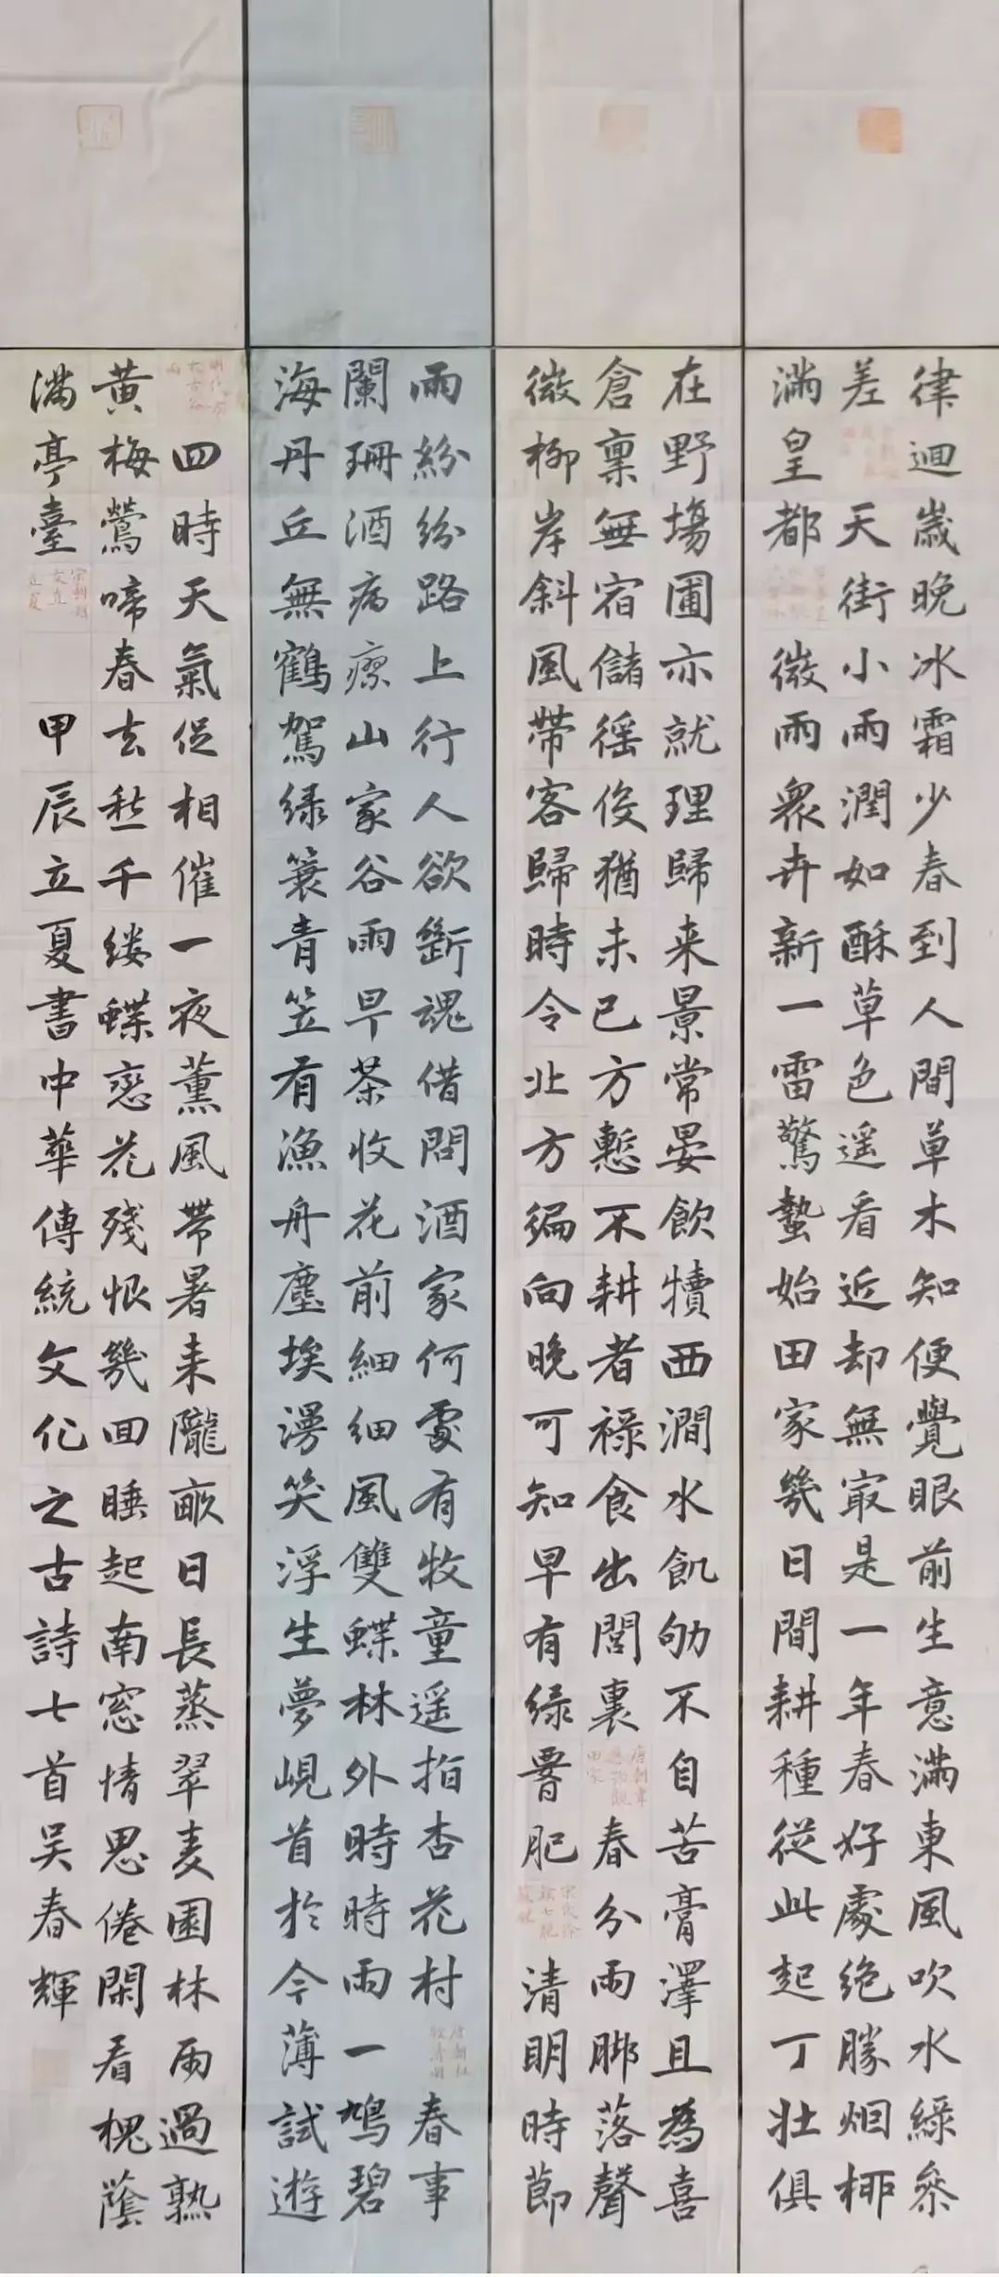 律迴歲晚冰霜少春到人間草木知便覺眼前生意滿東風吹水綠參
差 天街小雨潤如酥草色遥看近却無冣是一年春好處絶勝烟柳
滿皇都 微雨衆卉新一雷驚蟄始田家幾日閒耕種從此起丁壯俱
在野場圃亦就理歸来景常晏飲犢西澗水飢劬不自苦膏澤且為喜
倉稟無宿儲徭役猶未已方慙不耕者禄食出閭裏 春分雨脚落聲
微柳岸斜風帶客歸時令北方徧向晚可知早有绿署肥 清明時節
雨紛紛路上行人欲斷魂借問酒家何處有牧童遥指杏花村 春事
闌珊酒病瘳山家谷雨早茶收花前細細風雙蝶林外時時雨一鳩碧
海丹丘無鶴駕绿蓑青笠有漁舟塵埃漫笑浮生夢峴首於今薄試遊
四時天氣促相催一夜薰風帶暑来隴畝日長蒸翠麦園林雨過熟
黄梅鶯啼春去愁千缕蝶恋花殘恨幾回睡起南窓情思倦閑看槐蔭
滿亭臺 甲辰立夏書中華傳統文化之古詩七首吴春輝